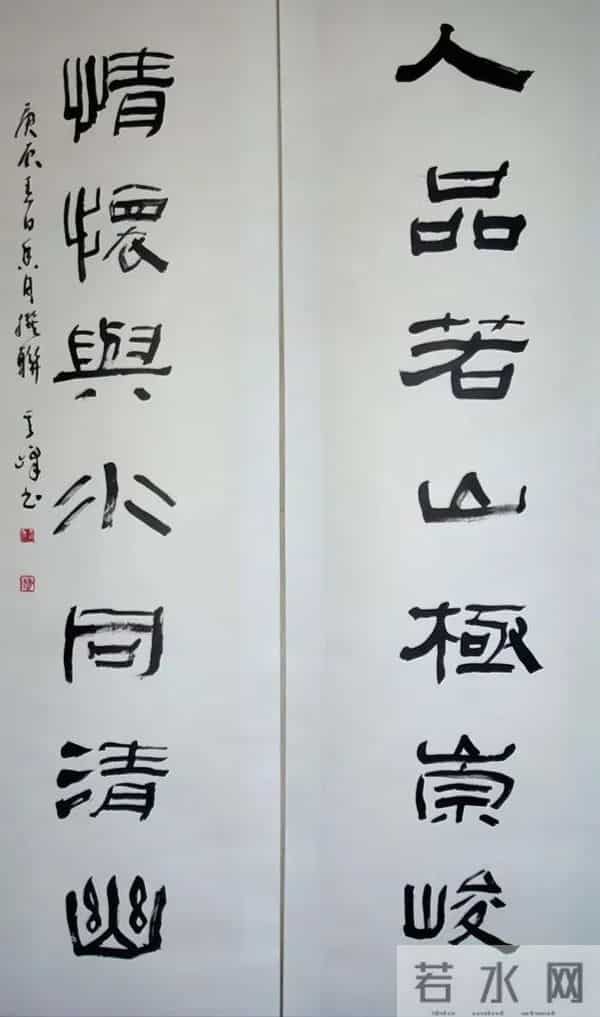 人品若山極崇峻
情懷與水同清幽
庚 日 撰聯 峰书
若水网